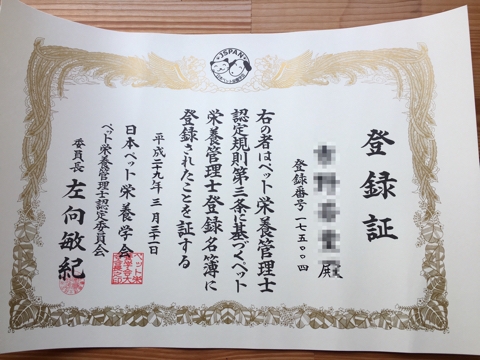 JSPAN
登録証
殿
登録番号一七五〇〇四
右の者はペット栄養管理士
認定規則第三条に基づくペット
栄養管理士登録名簿に
登録されたことを証する
平成二九年三月三一日
日本ペット栄養学会
ペット栄養管理士認定委員会
委員長 左向敏紀